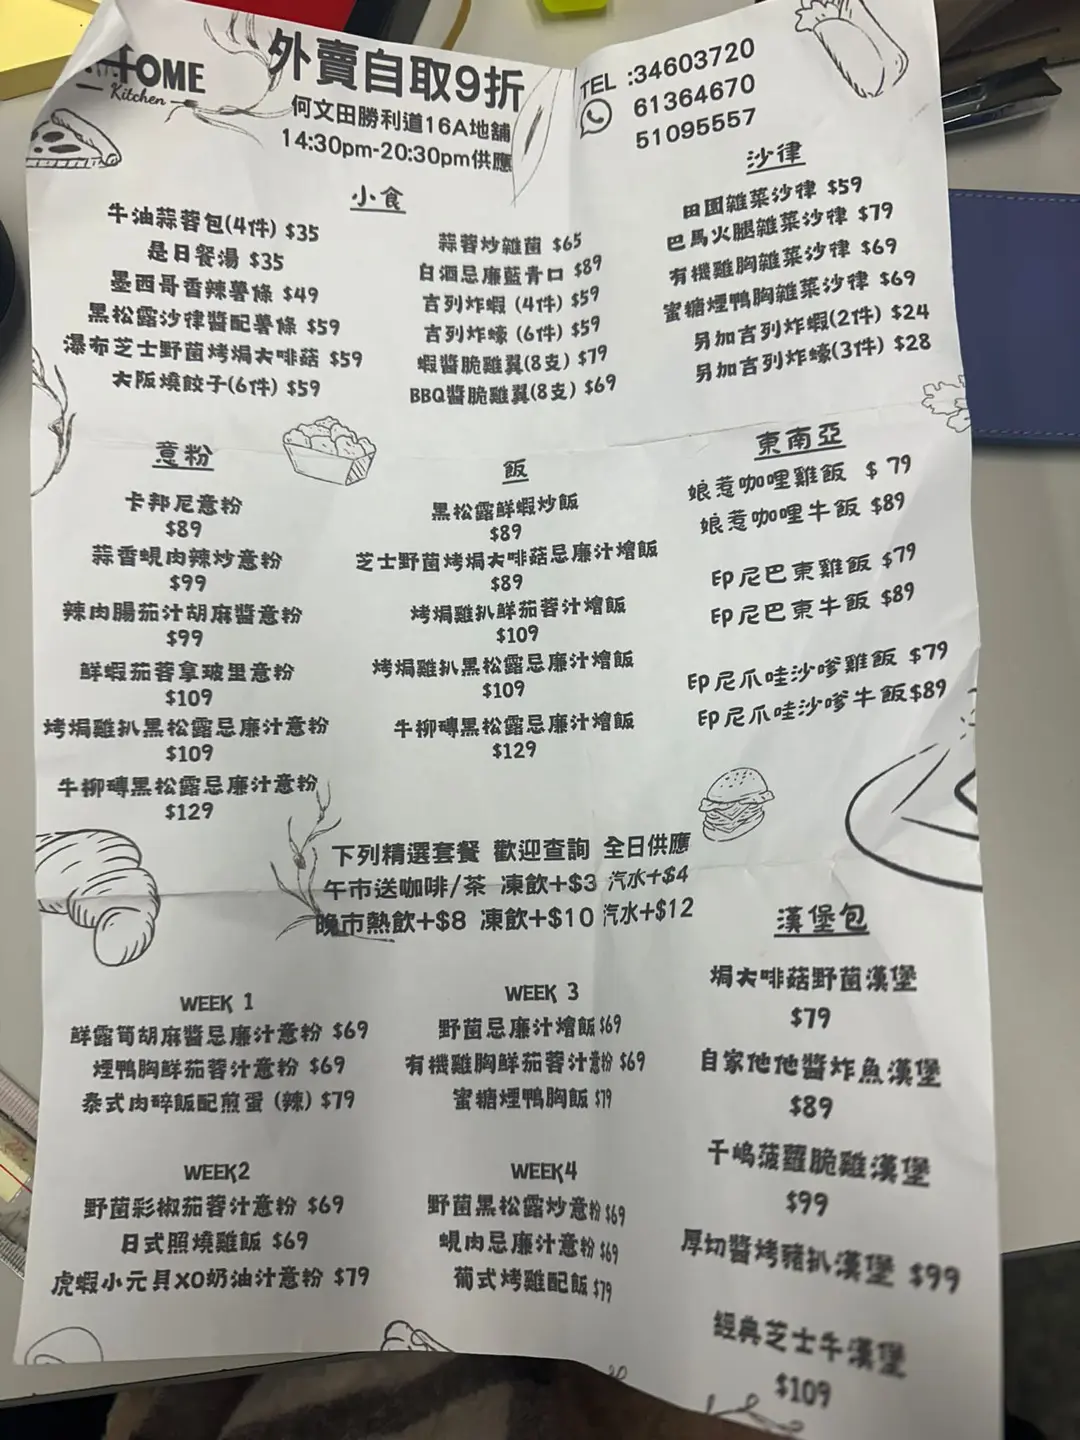 HOME
Kitchen
外賣自取9折
何文田勝利道16A地舖
14:30pm-20:30pm供應
TEL :34603720
61364670
51095557
小食
牛油蒜蓉包(4件) $35
是日餐湯 $35
墨西哥香辣薯條 $49
黑松露沙律醬配薯條 $59
瀑布芝士野菌烤焗大啡菇 $59
大阪燒餃子(6件) $59
蒜蓉炒雜菌 $65
白酒忌廉藍青口 $89
吉列炸蝦 (4件) $59
吉列炸蠔 (6件) $59
蝦醬脆雞翼(8支) $79
BBQ醬脆雞翼(8支) $69
沙律
田園雜菜沙律 $59
巴馬火腿雜菜沙律 $79
有機雞胸雜菜沙律 $69
蜜糖煙鴨胸雜菜沙律 $69
另加吉列炸蝦(2件) $24
另加吉列炸蠔(3件) $28
意粉
卡邦尼意粉
$89
蒜香蜆肉辣炒意粉
$99
辣肉腸茄汁胡麻醬意粉
$99
鮮蝦茄蓉拿玻里意粉
$109
烤焗雞扒黑松露忌廉汁意粉
$109
牛柳磚黑松露忌廉汁意粉
$129
飯
黑松露鮮蝦炒飯
$89
芝士野菌烤焗大啡菇忌廉汁燴飯
$89
烤焗雞扒鮮茄蓉汁燴飯
$109
烤焗雞扒黑松露忌廉汁燴飯
$109
牛柳磚黑松露忌廉汁燴飯
$129
東南亞
娘惹咖哩雞飯 $ 79
娘惹咖哩牛飯 $89
印尼巴東雞飯 $79
印尼巴東牛飯 $89
印尼爪哇沙嗲雞飯 $79
印尼爪哇沙嗲牛飯$89
下列精選套餐 歡迎查詢 全日供應
午市送咖啡/茶 凍飲+$3 汽水+$4
晚市熱飲+$8 凍飲+$10 汽水+$12
WEEK 1
鮮露筍胡麻醬忌廉汁意粉 $69
煙鴨胸鮮茄蓉汁意粉 $69
泰式肉碎飯配煎蛋 (辣) $79
WEEK2
野菌彩椒茄蓉汁意粉 $69
日式照燒雞飯 $69
虎蝦小元貝XO奶油汁意粉 $79
WEEK 3
野菌忌廉汁燴飯 $69
有機雞胸鮮茄蓉汁意粉 $69
蜜糖煙鴨胸飯 $79
WEEK4
野菌黑松露炒意粉 $69
蜆肉忌廉汁意粉 $69
葡式烤雞配飯 $79
漢堡包
焗大啡菇野菌漢堡
$79
自家他他醬炸魚漢堡
$89
千嶋菠蘿脆雞漢堡
$99
厚切醬烤豬扒漢堡 $99
經典芝士牛漢堡
$109